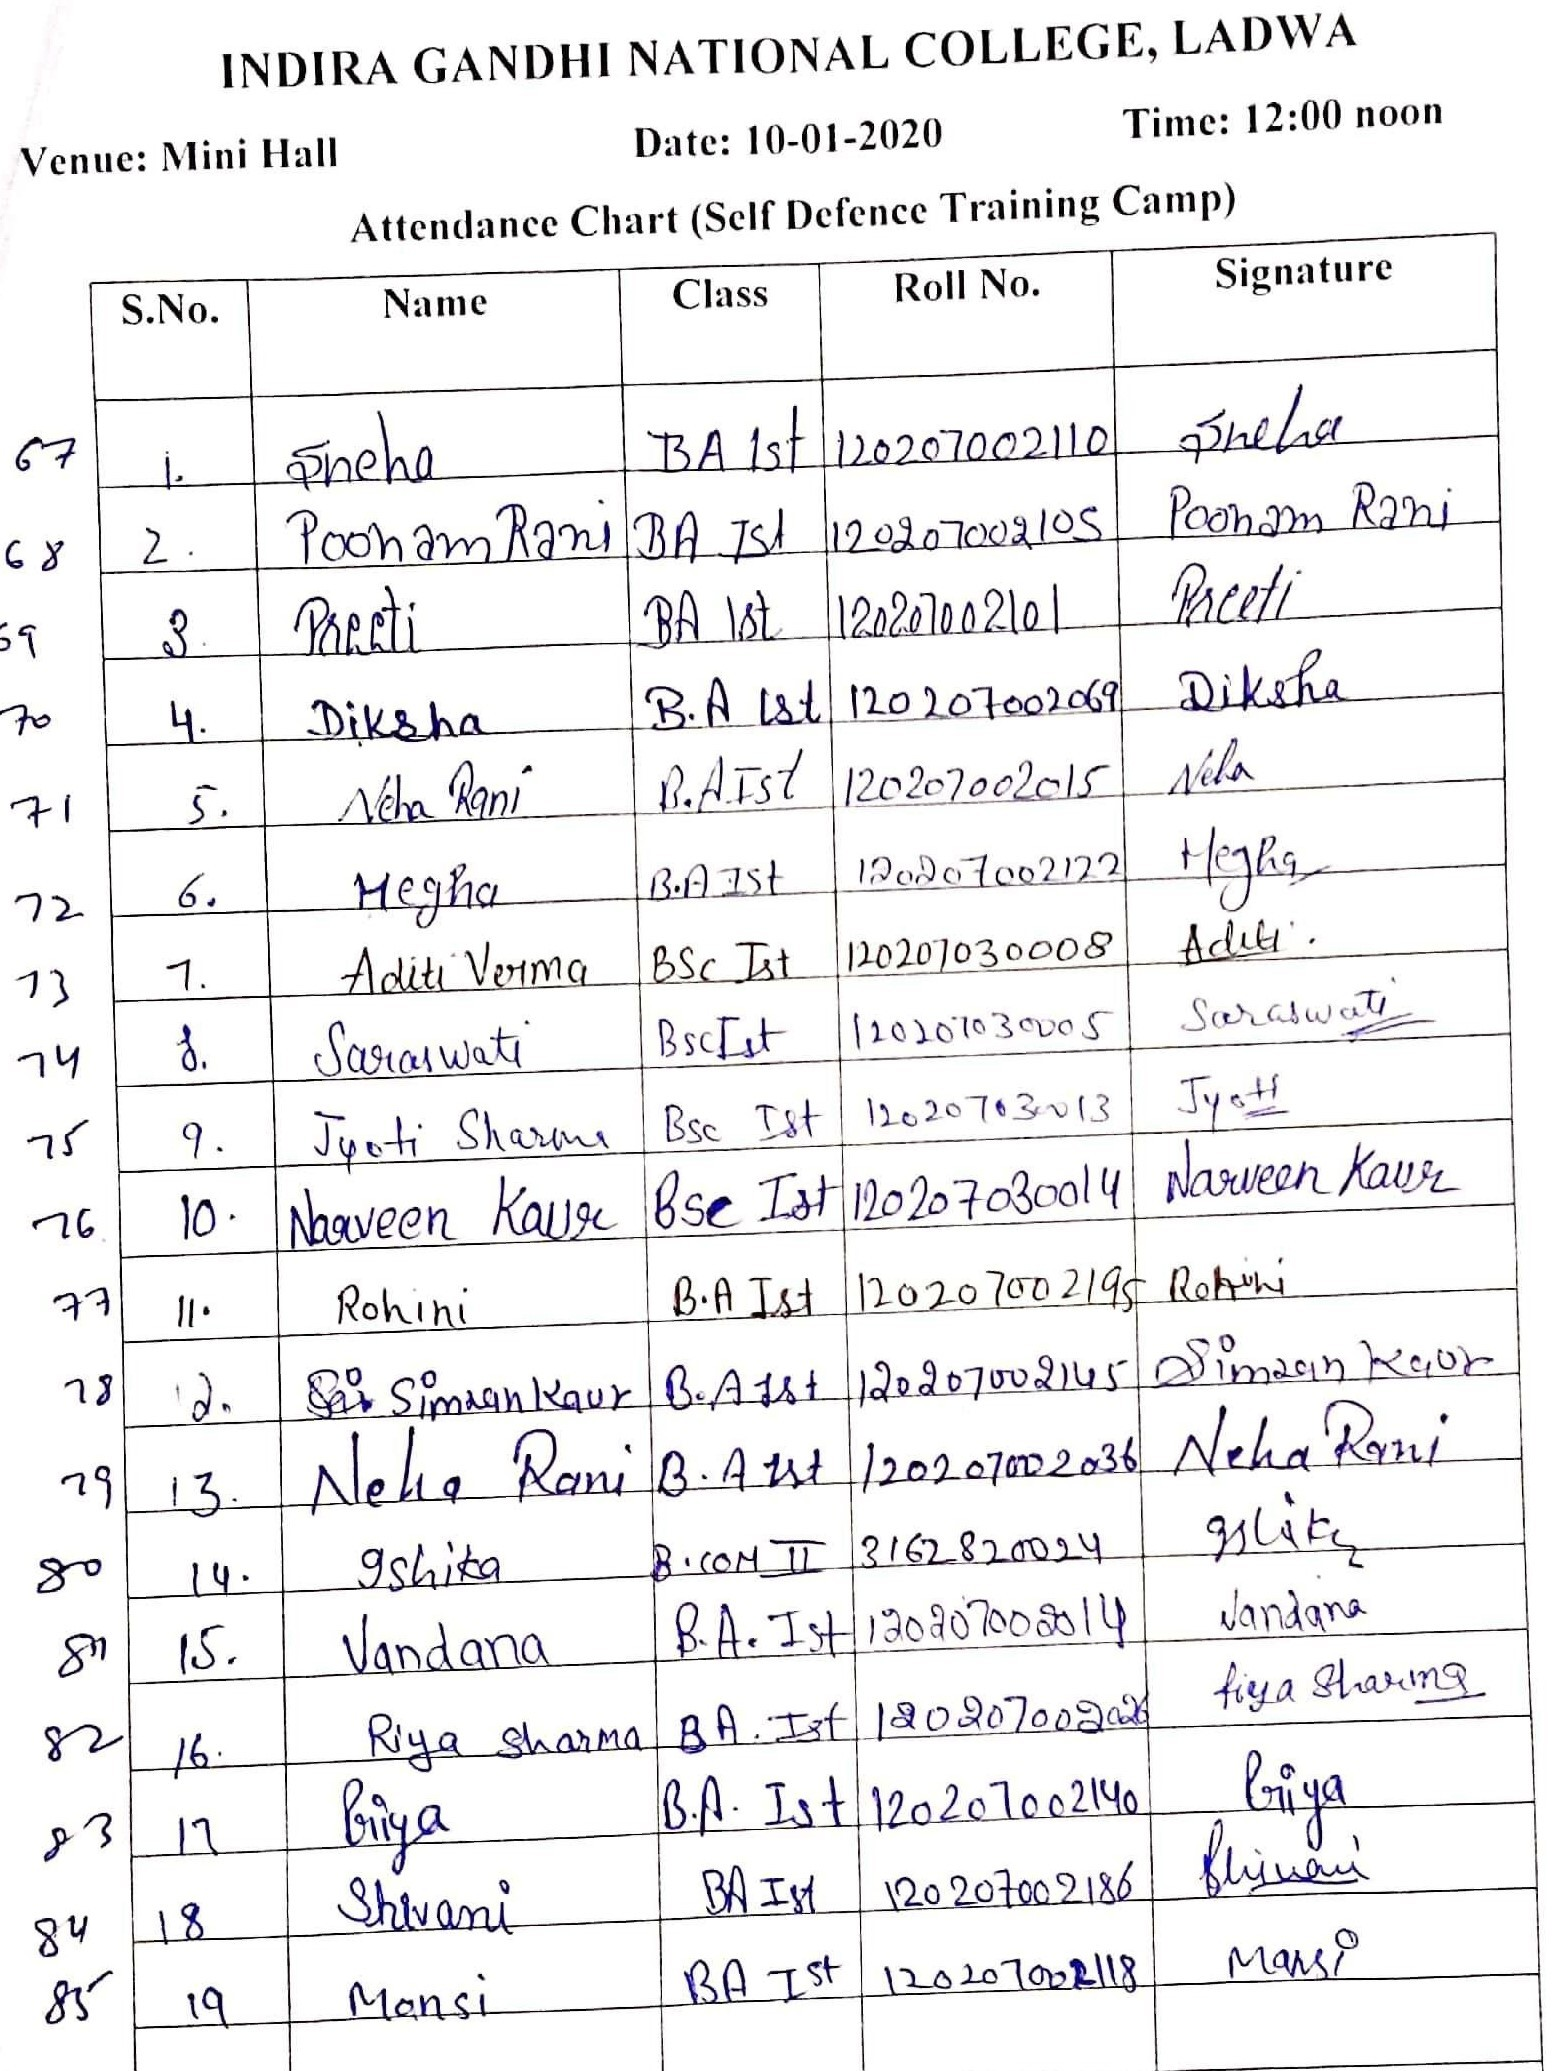 INDIRA GANDHI NATIONAL COLLEGE, LADWA
Venue: Mini Hall Date: 10-01-2020 Time: 12:00 noon
Attendance Chart (Self Defence Training Camp)
S.No. Name Class Roll No. Signature
67 1. Sneha BA Ist 120207002110 Sneha
68 2. Poonam Rani BA Ist 120207002105 Poonam Rani
69 3. Preeti BA Ist 120207002101 Preeti
70 4. Diksha B.A Ist 120207002069 Diksha
71 5. Neha Rani B.A Ist 120207002015 Neha
72 6. Megha B.A Ist 120207002122 Megha
73 7. Aditi Verma BSc Ist 120207030008 Aditi.
74 8. Saraswati Bsc Ist 120207030005 Saraswati
75 9. Jyoti Sharma Bsc Ist 120207030013 Jyoti
76 10. Navveen Kaur Bsc Ist 120207030014 Navveen Kaur
77 11. Rohini B.A Ist 120207002195 Rohini
78 12. Simran Kaur B.A Ist 120207002145 Simran Kaur
79 13. Neha Rani B.A Ist 120207002036 Neha Rani
80 14. Ishika B.COM II 3162820024 Ishika
81 15. Vandana B.A. Ist 120207002014 Vandana
82 16. Riya Sharma BA. Ist 120207002026 Riya Sharma
83 17 Priya B.A. Ist 120207002140 Priya
84 18 Shivani BA Ist 120207002186 Shivani
85 19 Mansi BA Ist 120207002118 Mansi